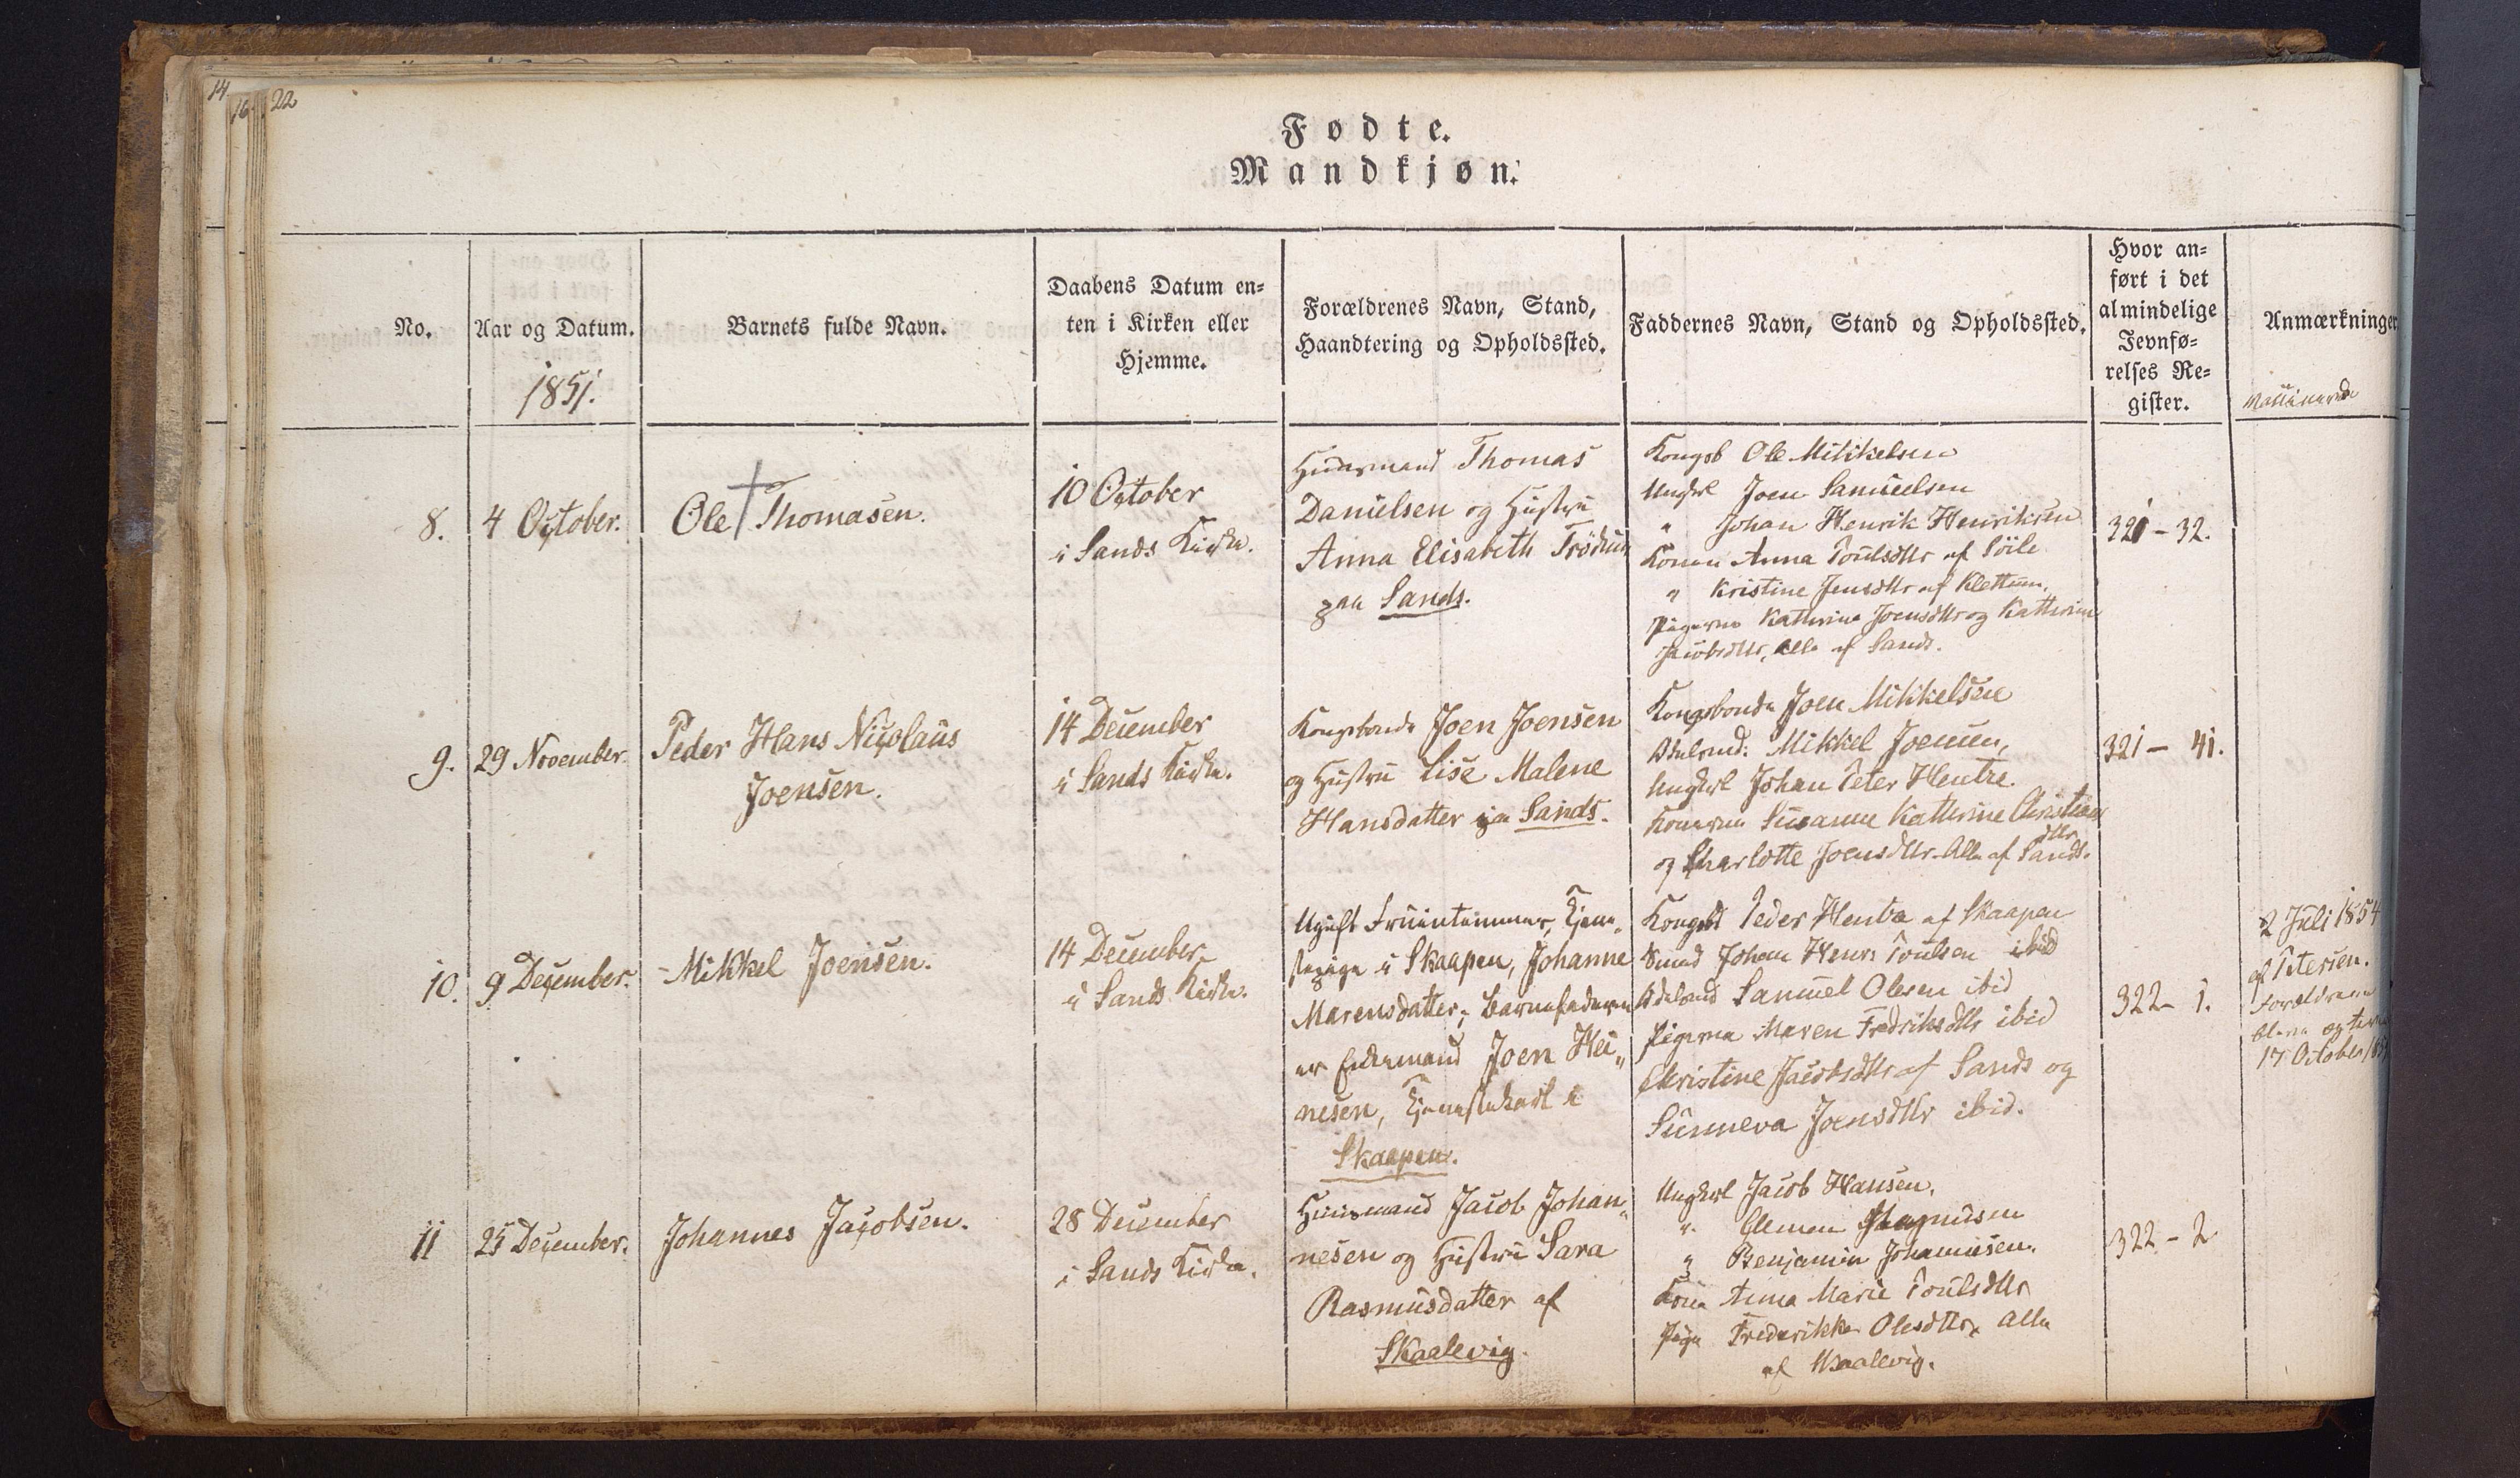 14
16
22
Fødte.
Mandkjøn.
No.
Aar og Datum.
1851.
Barnets fulde Navn.
Daabens Datum en=
ten i Kirken eller
Hjemme.
Forældrenes Navn, Stand,
Haandtering og Opholdssted.
Faddernes Navn, Stand og Opholdssted.
Hvor an=
ført i det
almindelige
Jevnfø=
relses Re=
gister.
Anmærkninger
8.
4 October.
Ole Thomasen.
10 October
i Sands Kirke.
Huusmand Thomas
Danielsen og Hustru
Anna Elisabeth
paa Sands.
Kongsb Ole Mikkelsen
Ungkrl Joen Samuelsen
" Johan Henrik Henriksen
Konen Anna Poulsdttr af
" Kristine Jensdttr af Klettum.
Pigerne Kathrine Joensdttr og Kathrine
Jacobsdttr, Alle af Sands.
321-32.
9.
29 November
Peder Hans Nicolaus
Joensen.
14 December
i Sands Kirke.
Kongsbonde Joen Joensen
og Hustru Lise Malene
Hansdatter paa Sands.
Kongsbonde Joen Mikkelsen
Mikkel Joensen,
Ungkrl Johan Peter
Konerne Susanne Kathrine Christians
dttr
og Charlotte Joensdttr. Alle af Sands.
321- 41.
10.
9 December.
Mikkel Joensen.
14 December
i Sands Kirke.
Ugift Fruentimmer, Tjene-
stepige i Skaapen, Johanne
Marensdatter; Barnefaderen
er Enkemand Joen Hei„
nesen, Tjenestekarl i
Skaapen.
Kongsbd Peder af Skaapen
Johan Poulsen ibid
Samuel Olesen ibid
Pigerne Maren Fredriksdttr ibid
Christine Jacobsdttr af Sands og
Sunneva Joensdttr ibid.
322- 1.
2 Juli 1854
af Petersen.
Forældrene
17 October
11
25 December.
Johannes Jacobsen.
28 December
i Sands Kirke.
Huusmand Jacob Johan„
nesen og Hustru Sara
Rasmusdatter af
Skaalevig.
Ungkrl Jacob Hansen.
" Clemen Magnusen
" Benjamin Johannesen.
Kone Anna Marie Poulsdttr
Pige Frederikke Olesdttr, Alle
af Skaalevig.
322-2